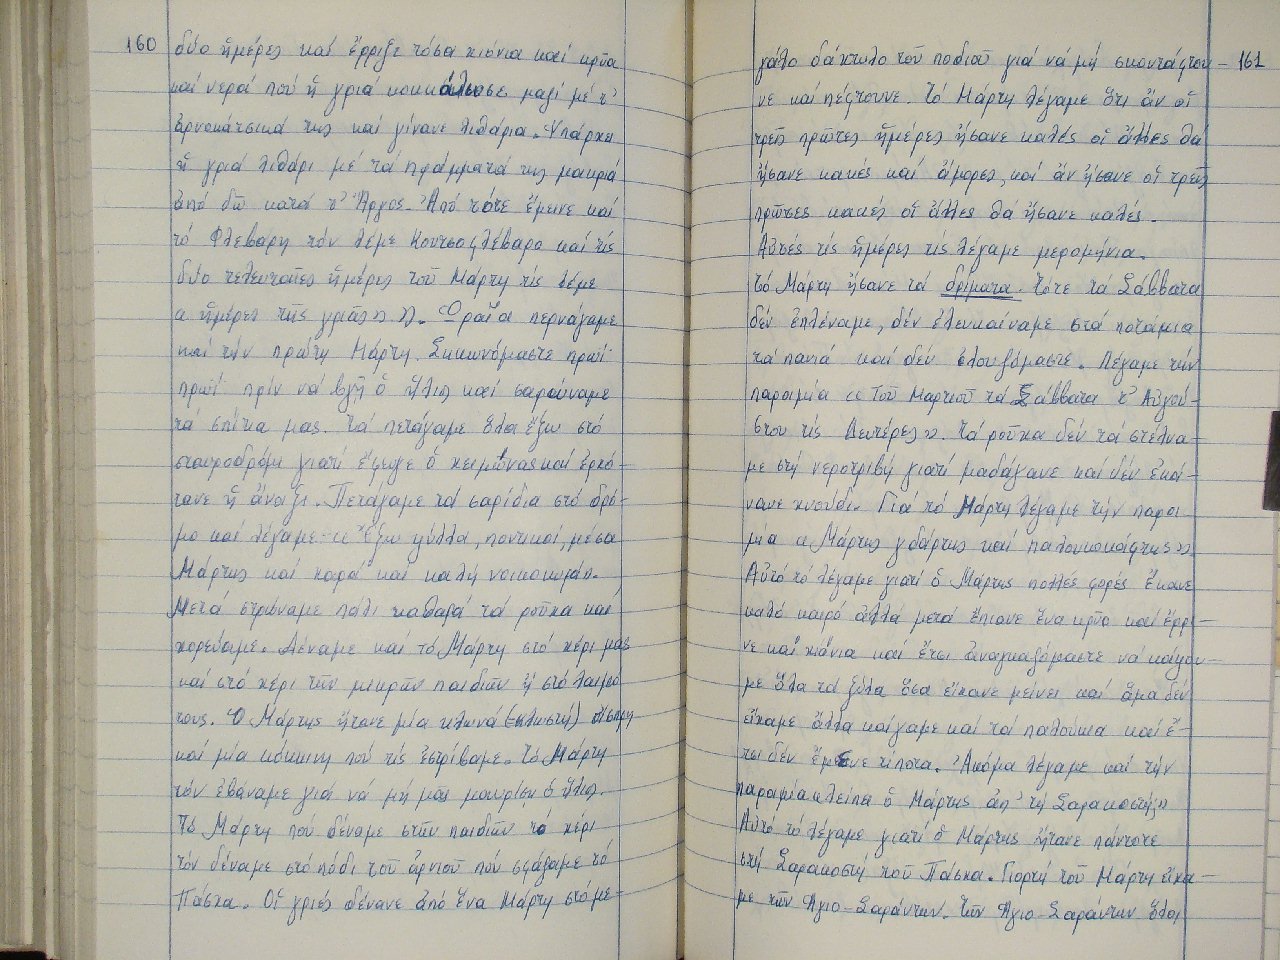 160
δύο ἡμέρες καί ἔρριξε τόσα χιόνια καί κρῦα
καί νερά πού ἡ γριά κοκκάλωσε μαζί μέ τ'
ἀρνοκάτσικά της καί γίνανε λιθάρια. Ὑπάρχει
ἡ γριά λιθάρι μέ τά πράμματά της μακριά
ἀπό δῶ κατά τ' Ἄργος. Ἀπό τότε ἔμεινε καί
τό Φλεβάρη τόν λέμε Κουτσοφλέβαρο καί τίς
δύο τελευταῖες ἡμέρες τοῦ Μάρτη τίς λέμε
«ἡμέρες τῆς γριᾶς». Ὡραῖα περνάγαμε
καί τήν πρώτη Μάρτη. Σηκωνόμαστε πρωΐ
πρωΐ πρίν νά βγῆ ὁ ἥλιος καί σαρώναμε
τά σπίτια μας. Τά πετάγαμε ὅλα ἔξω στό
σταυροδρόμι γιατί ἔφυγε ὁ χειμῶνας καί ἐρχό-
τανε ἡ ἄνοιξι. Πετάγαμε τά σαρίδια στό δρό-
μο καί λέγαμε - «Ἔξω ψύλλοι, ποντικοί, μέσα
Μάρτης καί χαρά καί καλή νοικοκυρά».
Μετά στρώναμε πάλι καθαρά τά ροῦχα καί
χορεύαμε. Δέναμε καί τό Μάρτη στό χέρι μας
καί στό χέρι τῶν μικρῶν παιδιῶν ἤ στό λαιμό
τους. Ὁ Μάρτης ἤτανε μία κλωνά (κλωστή) ἄσπρη
καί μία κόκκινη πού τίς ἐστρίβαμε. Τό Μάρτη
τόν ἐβάναμε γιά νά μή μᾶς μαυρίσῃ ὁ ἥλιος.
Τό Μάρτη πού δέναμε στῶν παιδιῶν τό χέρι
τόν δέναμε στό πόδι τοῦ ἀρνιοῦ πού σφάζαμε τό
Πάσχα. Οἱ γριές δένανε ἀπό ἕνα Μάρτη στό με-
161
γάλο δάχτυλο τοῦ ποδιοῦ γιά νά μή σκοντάφτου-
νε καί πέφτουνε. Τό Μάρτη λέγαμε ὅτι ἄν οἱ
τρεῖς πρῶτες ἡμέρες ἤσανε καλές οἱ ἄλλες θά
ἤσανε κακές καί ἄμορες, καί ἄν ἤσανε οἱ τρεῖς
πρῶτες κακές οἱ ἄλλες θά ἤσανε καλές.
Αὐτές τίς ἡμέρες τίς λέγαμε μερομήνια.
Τό Μάρτη ἤσανε τά δρίματα. Τότε τά Σάββατα
δέν ἐπλέναμε, δέν ἐλευκαίναμε στά ποτάμια
τά πανιά καί δέν ἐλουζόμαστε. Λέγαμε τήν
παροιμία «Τοῦ Μαρτιοῦ τά Σάββατα τ' Αὐγού-
στου τίς Δευτέρες». Τά ροῦχα δέν τά στέλνα-
με στή νεροτριβή γιατί μαδάγανε καί δέν ἐκά-
νανε χνούδι. Γιά τό Μάρτη λέγαμε τήν παροι
μία «Μάρτης γδάρτης καί παλουκοκάφτης».
Αὐτό τό λέγαμε γιατί ὁ Μάρτης πολλές φορές ἔκανε
καλό καιρό ἀλλά μετά ἔπιανε ἕνα κρῦο καί ἔρρι-
νε καί χιόνια καί ἔτσι ἀναγκαζόμαστε νά κάψου-
με ὅλα τά ξύλα ὅσα εἴχανε μείνει καί ἅμα δέν
εἴχαμε ἄλλα καίγαμε καί τά παλούκια καί ἔ-
τσι δέν ἔμενε τίποτα. Ἀκόμα λέγαμε καί τήν
παροιμία «λείπει ὁ Μάρτης ἀπ' τή Σαρακοστή;»
Αὐτό τό λέγαμε γιατί ὁ Μάρτης ἤτανε πάντοτε
στή Σαρακοστή τοῦ Πάσχα. Γιορτή τοῦ Μάρτη εἴχα-
με τῶν Ἁγιο-Σαράντων. Τῶν Ἁγιο-Σαράντων ὅλοι